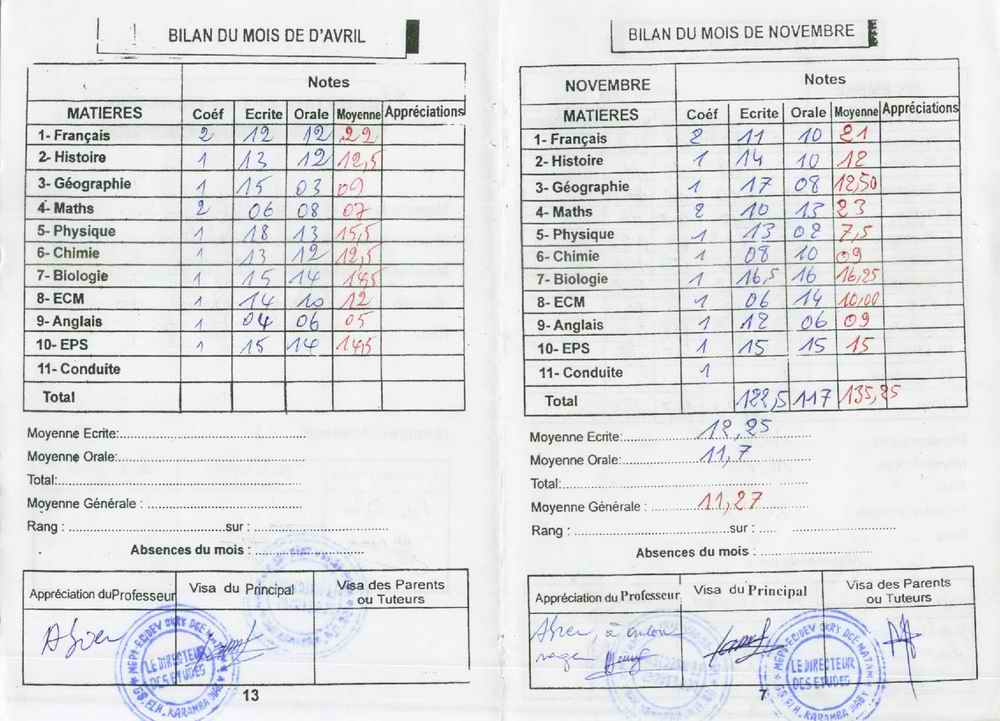 BILAN DU MOIS DE D'AVRIL
Notes
MATIERES Coéf Ecrite Orale Moyenne Appréciations
1- Français 2 12 12 22
2- Histoire 1 13 12 12,5
3- Géographie 1 15 03 09
4- Maths 2 06 08 07
5- Physique 1 18 13 15,5
6- Chimie 1 13 12 12,5
7- Biologie 1 15 14 14,5
8- ECM 1 14 10 12
9- Anglais 1 04 06 05
10- EPS 1 15 14 14,5
11- Conduite
Total
Moyenne Ecrite:
Moyenne Orale:
Total:
Moyenne Générale :
Rang : sur :
Absences du mois :
Appréciation du Professeur Visa du Principal Visa des Parents ou Tuteurs
Assez
LE DIRECTEUR
DES ETUDES
13
BILAN DU MOIS DE NOVEMBRE
NOVEMBRE Notes
MATIERES Coéf Ecrite Orale Moyenne Appréciations
1- Français 2 11 10 21
2- Histoire 1 14 10 12
3- Géographie 1 17 08 12,50
4- Maths 2 10 13 23
5- Physique 1 13 02 7,5
6- Chimie 1 08 10 09
7- Biologie 1 16,5 16 16,25
8- ECM 1 06 14 10,00
9- Anglais 1 12 06 09
10- EPS 1 15 15 15
11- Conduite 1
Total 122,5 117 135,25
Moyenne Ecrite: 12,25
Moyenne Orale: 11,7
Total:
Moyenne Générale : 11,27
Rang : sur :
Absences du mois :
Appréciation du Professeur Visa du Principal Visa des Parents ou Tuteurs
Assez, à encou
rager
LE DIRECTEUR
DES ETUDES
7